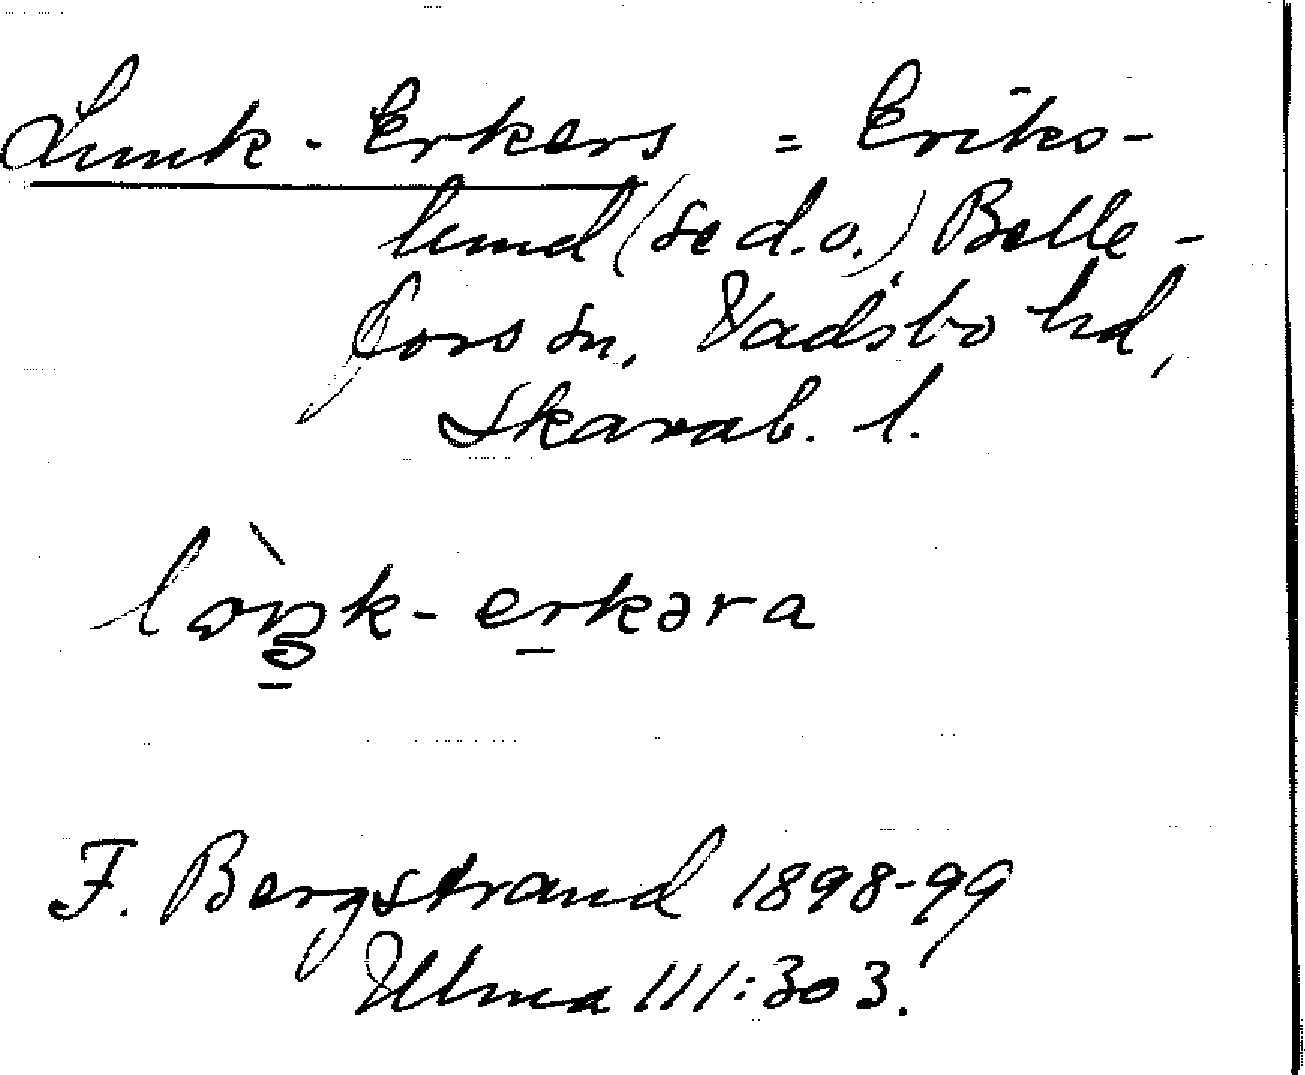 Lunk-Erkers = Eriks-
lund (se d.o.) Belle-
fors sn, Vadsbo hd,
Skarab. l.
lòŋk-erkəra
F. Bergstrand 1898-99
Ulma 111:303.